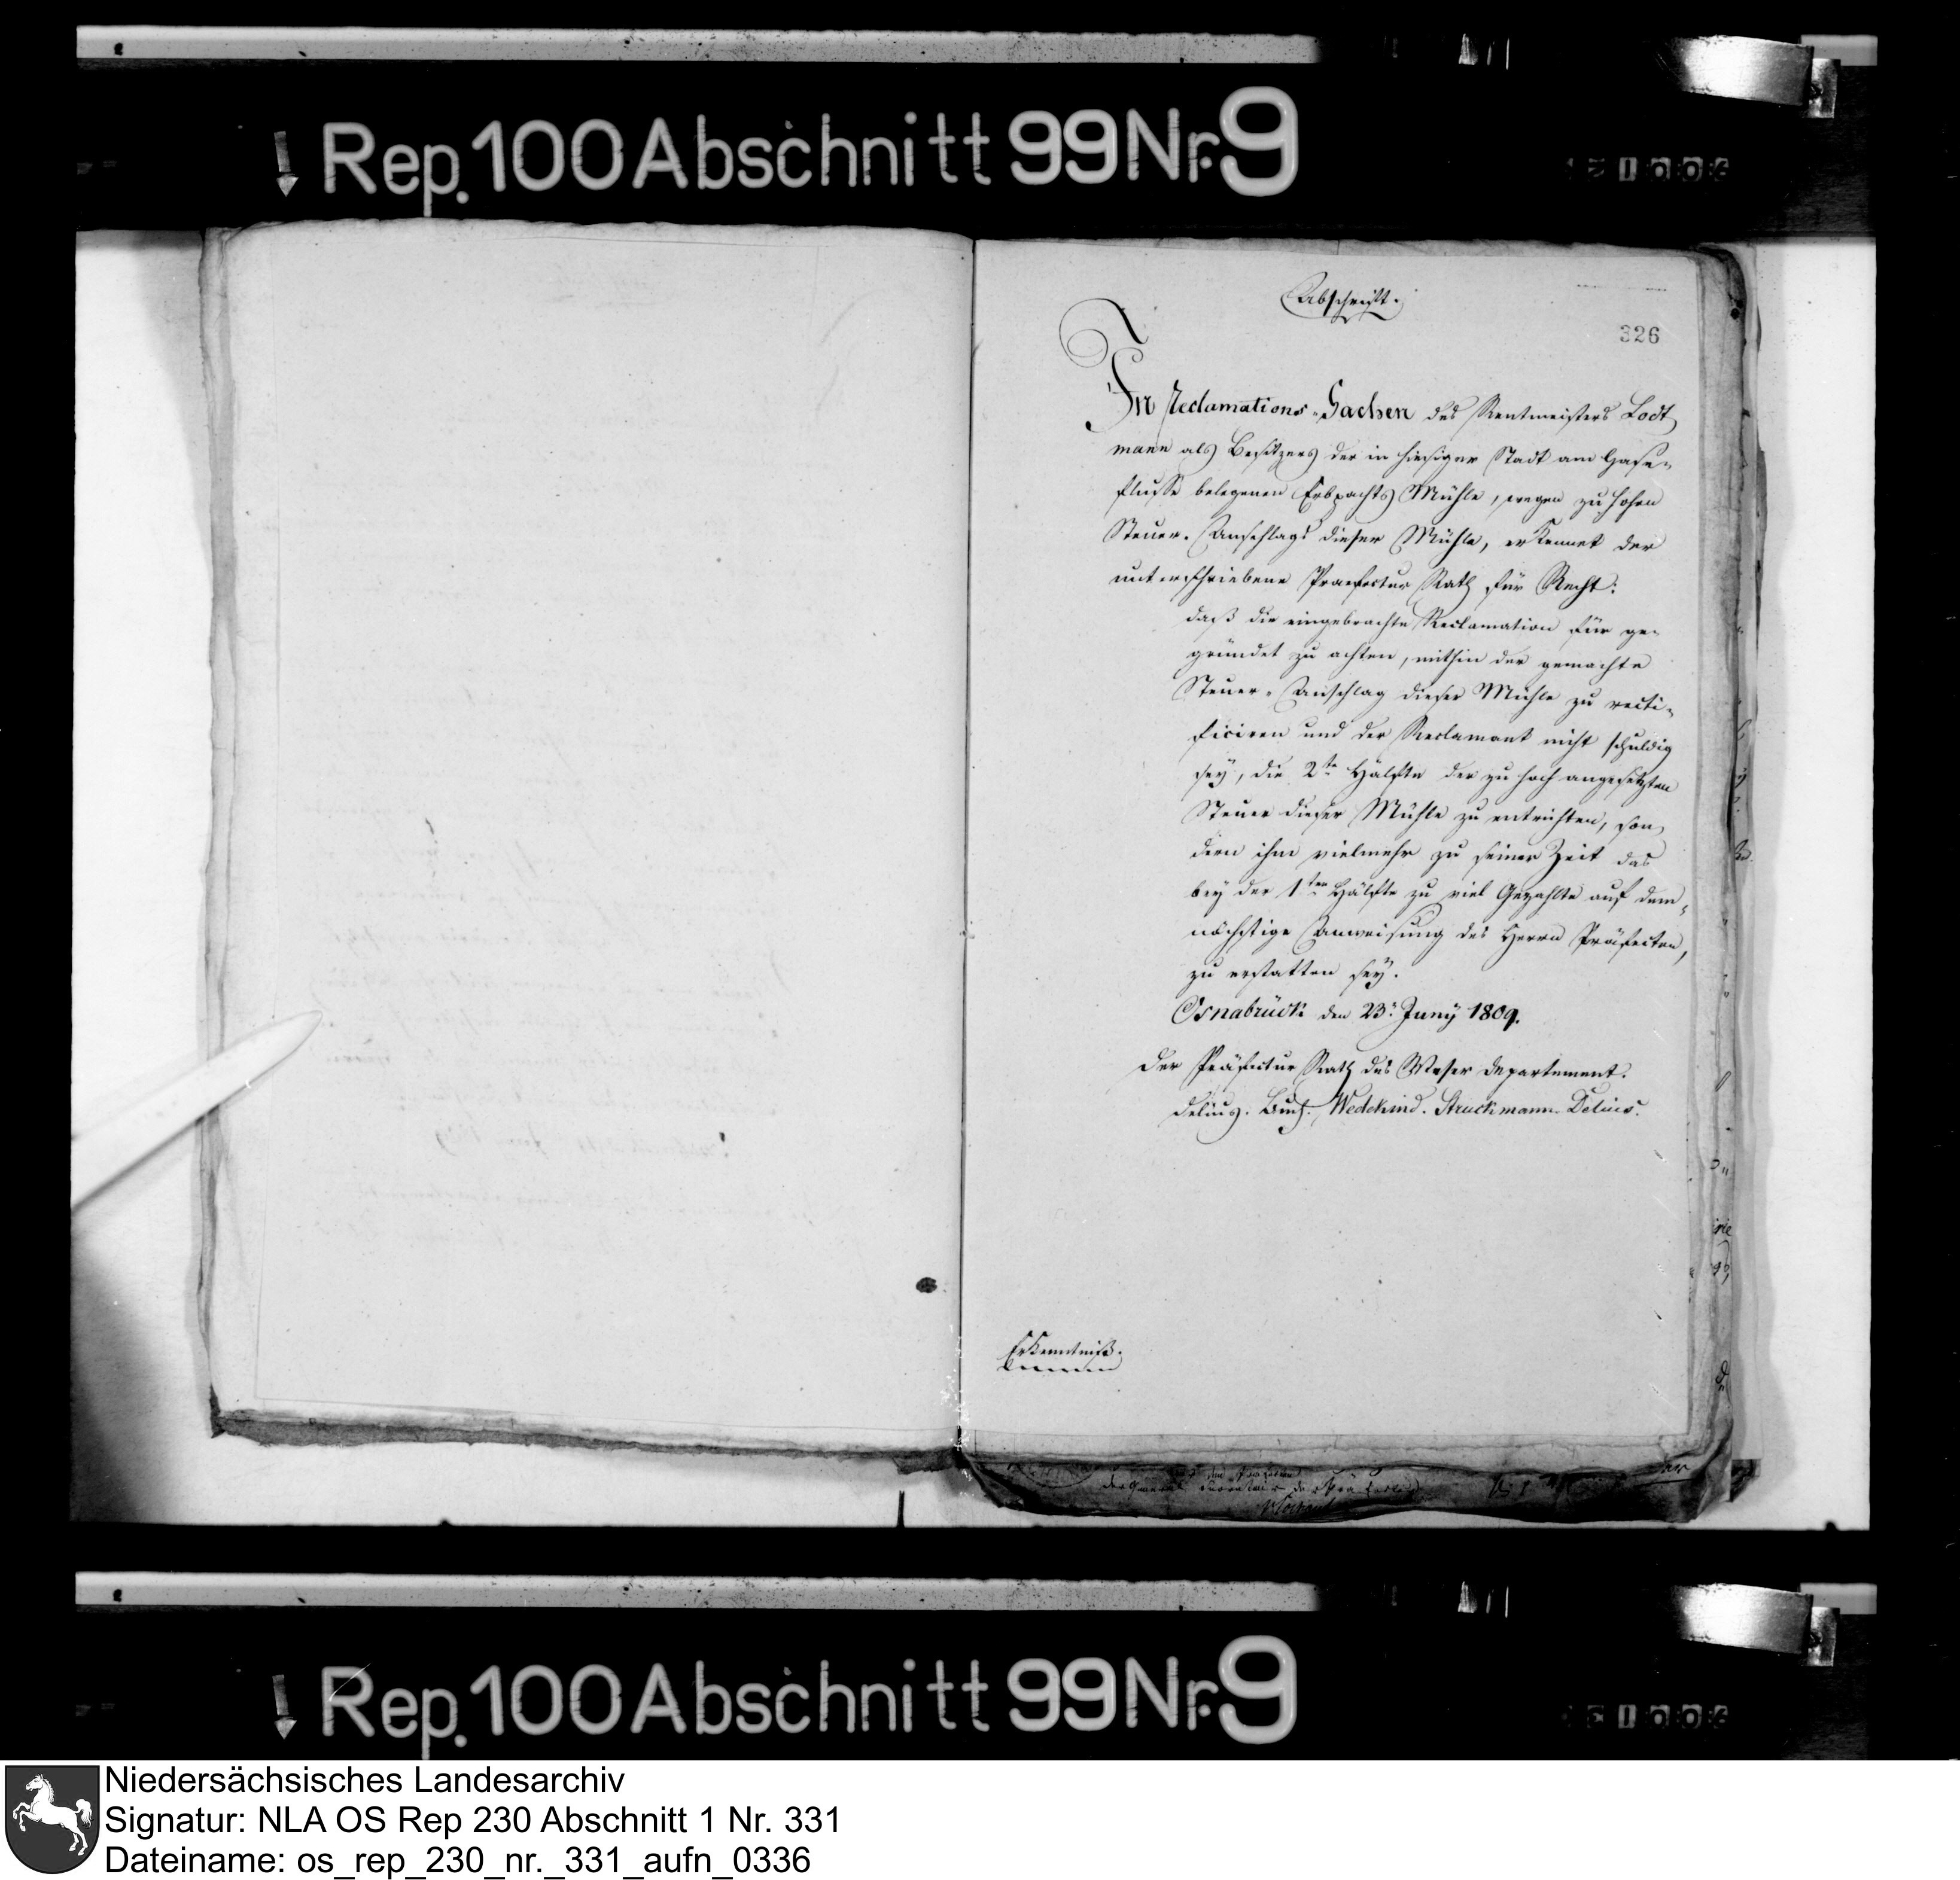 Rep. 100 Abschnitt 99 Nr. 9
Abschrift.
326
In Reclamations-Sachen des Rentmeisters Lodt
mann als Besitzers der in hiesiger Stadt am Hase-
flusse belegenen Erbpachts Mühle, wegen zu hohen
Steuer-Anschlags dieser Mühle, erkennet der
unterschriebene Praefectur Rath für Recht:
daß die eingebrachte Reclamation für ge-
gründet zu achten, mithin der gemachte
Steuer-Anschlag dieser Mühle zu recti-
ficiren und der Reclamant nicht schuldig
sey, die 2te Hälfte der zu hoch angesetzten
Steuer dieser Mühle zu entrichten, son-
dern ihm vielmehr zu seiner Zeit das
bey der 1ten Hälfte zu viel Gezahlte auf dem-
nächstige Anweisung des Herrn Präfecten,
zu erstatten sey.
Osnabrück den 23. Juny 1809.
Der Präfectur Rath des Weser Departement.
Delius. Buch. Wedekind. Struckmann. Delius.
Erkenntniß.
Rep. 100 Abschnitt 99 Nr. 9
Niedersächsisches Landesarchiv
Signatur: NLA OS Rep 230 Abschnitt 1 Nr. 331
Dateiname: os_rep_230_nr._331_aufn_0336